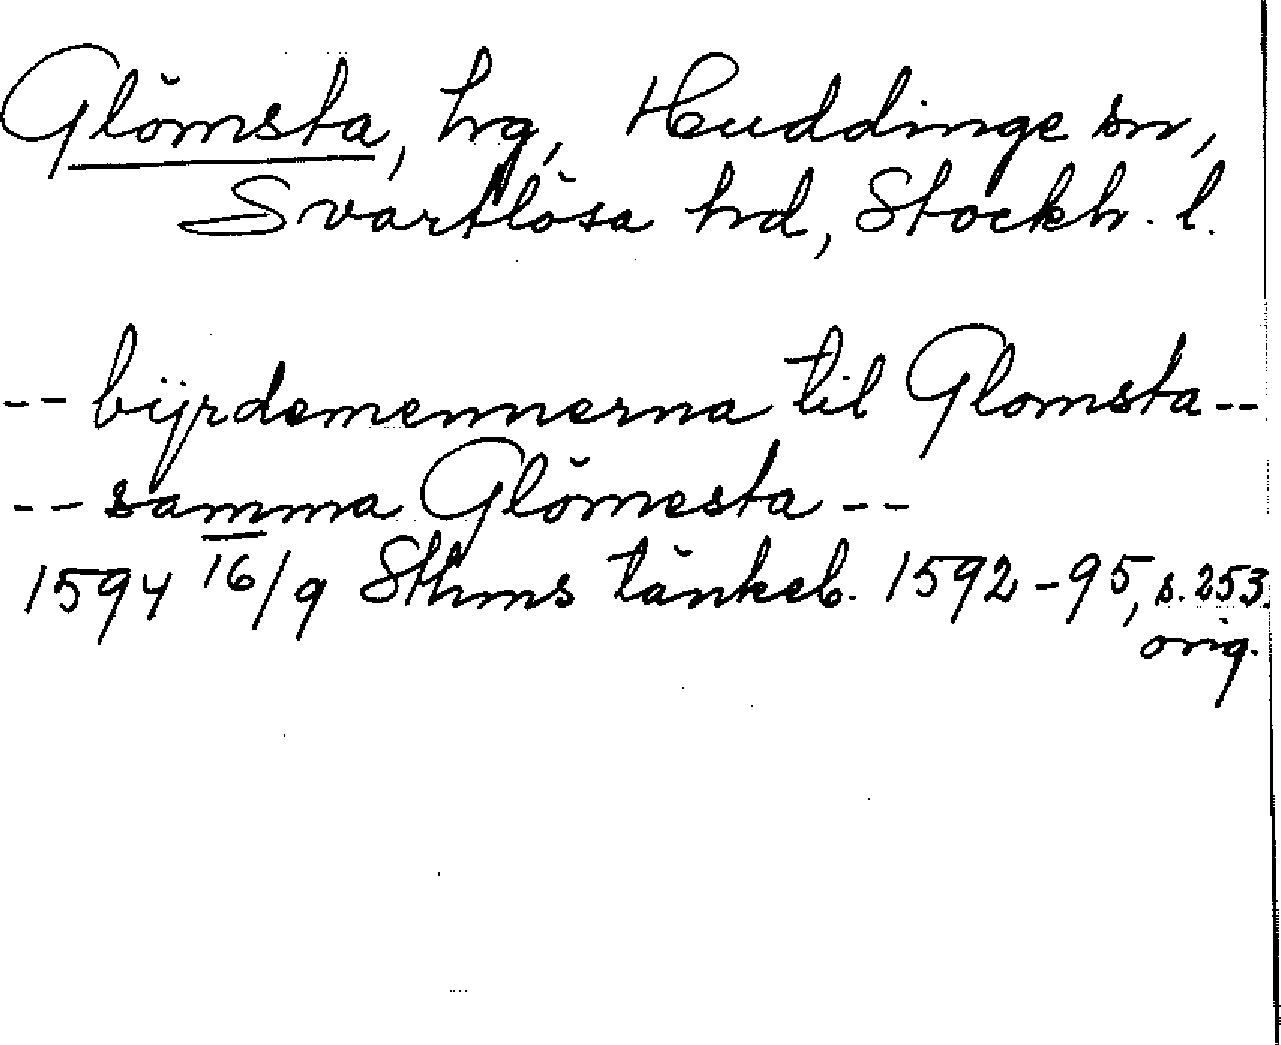 Glömsta, hrg, Huddinge sn,
Svartlösa hd, Stockh. l.
-- bijrdemennerna til Glomsta --
-- samma Glömesta --
1594 16/9 Sthms tänkeb. 1592-95, s. 253.
orig.